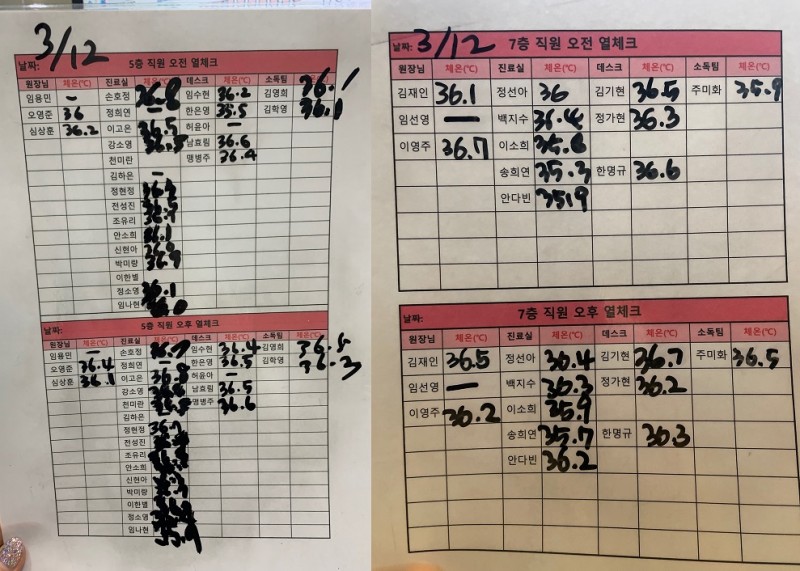 3/12
날짜: 5층 직원 오전 열체크
원장님 체온(℃) 진료실 체온(℃) 데스크 체온(℃) 소독팀 체온(℃)
임용민 — 손호정 36.8 임수현 36.2 김영희 36.1
오영준 36 정희연 — 한은영 35.5 김학영 36.1
심상훈 36.2 이고은 36.5 허윤아 —
강소영 남효림 36.6
천미란 맹병주 36.4
김하은 —
정현정
전성진
조유리
안소희 36.1
신현아
박미랑
이한별
정소영 36.1
임나현
날짜: 5층 직원 오후 열체크
원장님 체온(℃) 진료실 체온(℃) 데스크 체온(℃) 소독팀 체온(℃)
임용민 — 손호정 임수현 36.4 김영희 36.5
오영준 36.4 정희연 한은영 36.5 김학영 36.3
심상훈 36.1 이고은 허윤아 —
강소영 남효림 36.5
천미란 맹병주 36.6
김하은
정현정
전성진
조유리
안소희
신현아
박미랑
이한별
정소영
임나현 35.9
날짜: 3/12 7층 직원 오전 열체크
원장님 체온(℃) 진료실 체온(℃) 데스크 체온(℃) 소독팀 체온(℃)
김재인 36.1 정선아 36 김기현 36.5 주미화 35.9
임선영 — 백지수 36.4 정가현 36.3
이영주 36.7 이소희
송희연 35.3 한명규 36.6
안다빈 35.9
날짜: 7층 직원 오후 열체크
원장님 체온(℃) 진료실 체온(℃) 데스크 체온(℃) 소독팀 체온(℃)
김재인 36.5 정선아 36.4 김기현 36.7 주미화 36.5
임선영 — 백지수 36.3 정가현 36.2
이영주 36.2 이소희 35.9
송희연 35.7 한명규 36.3
안다빈 36.2